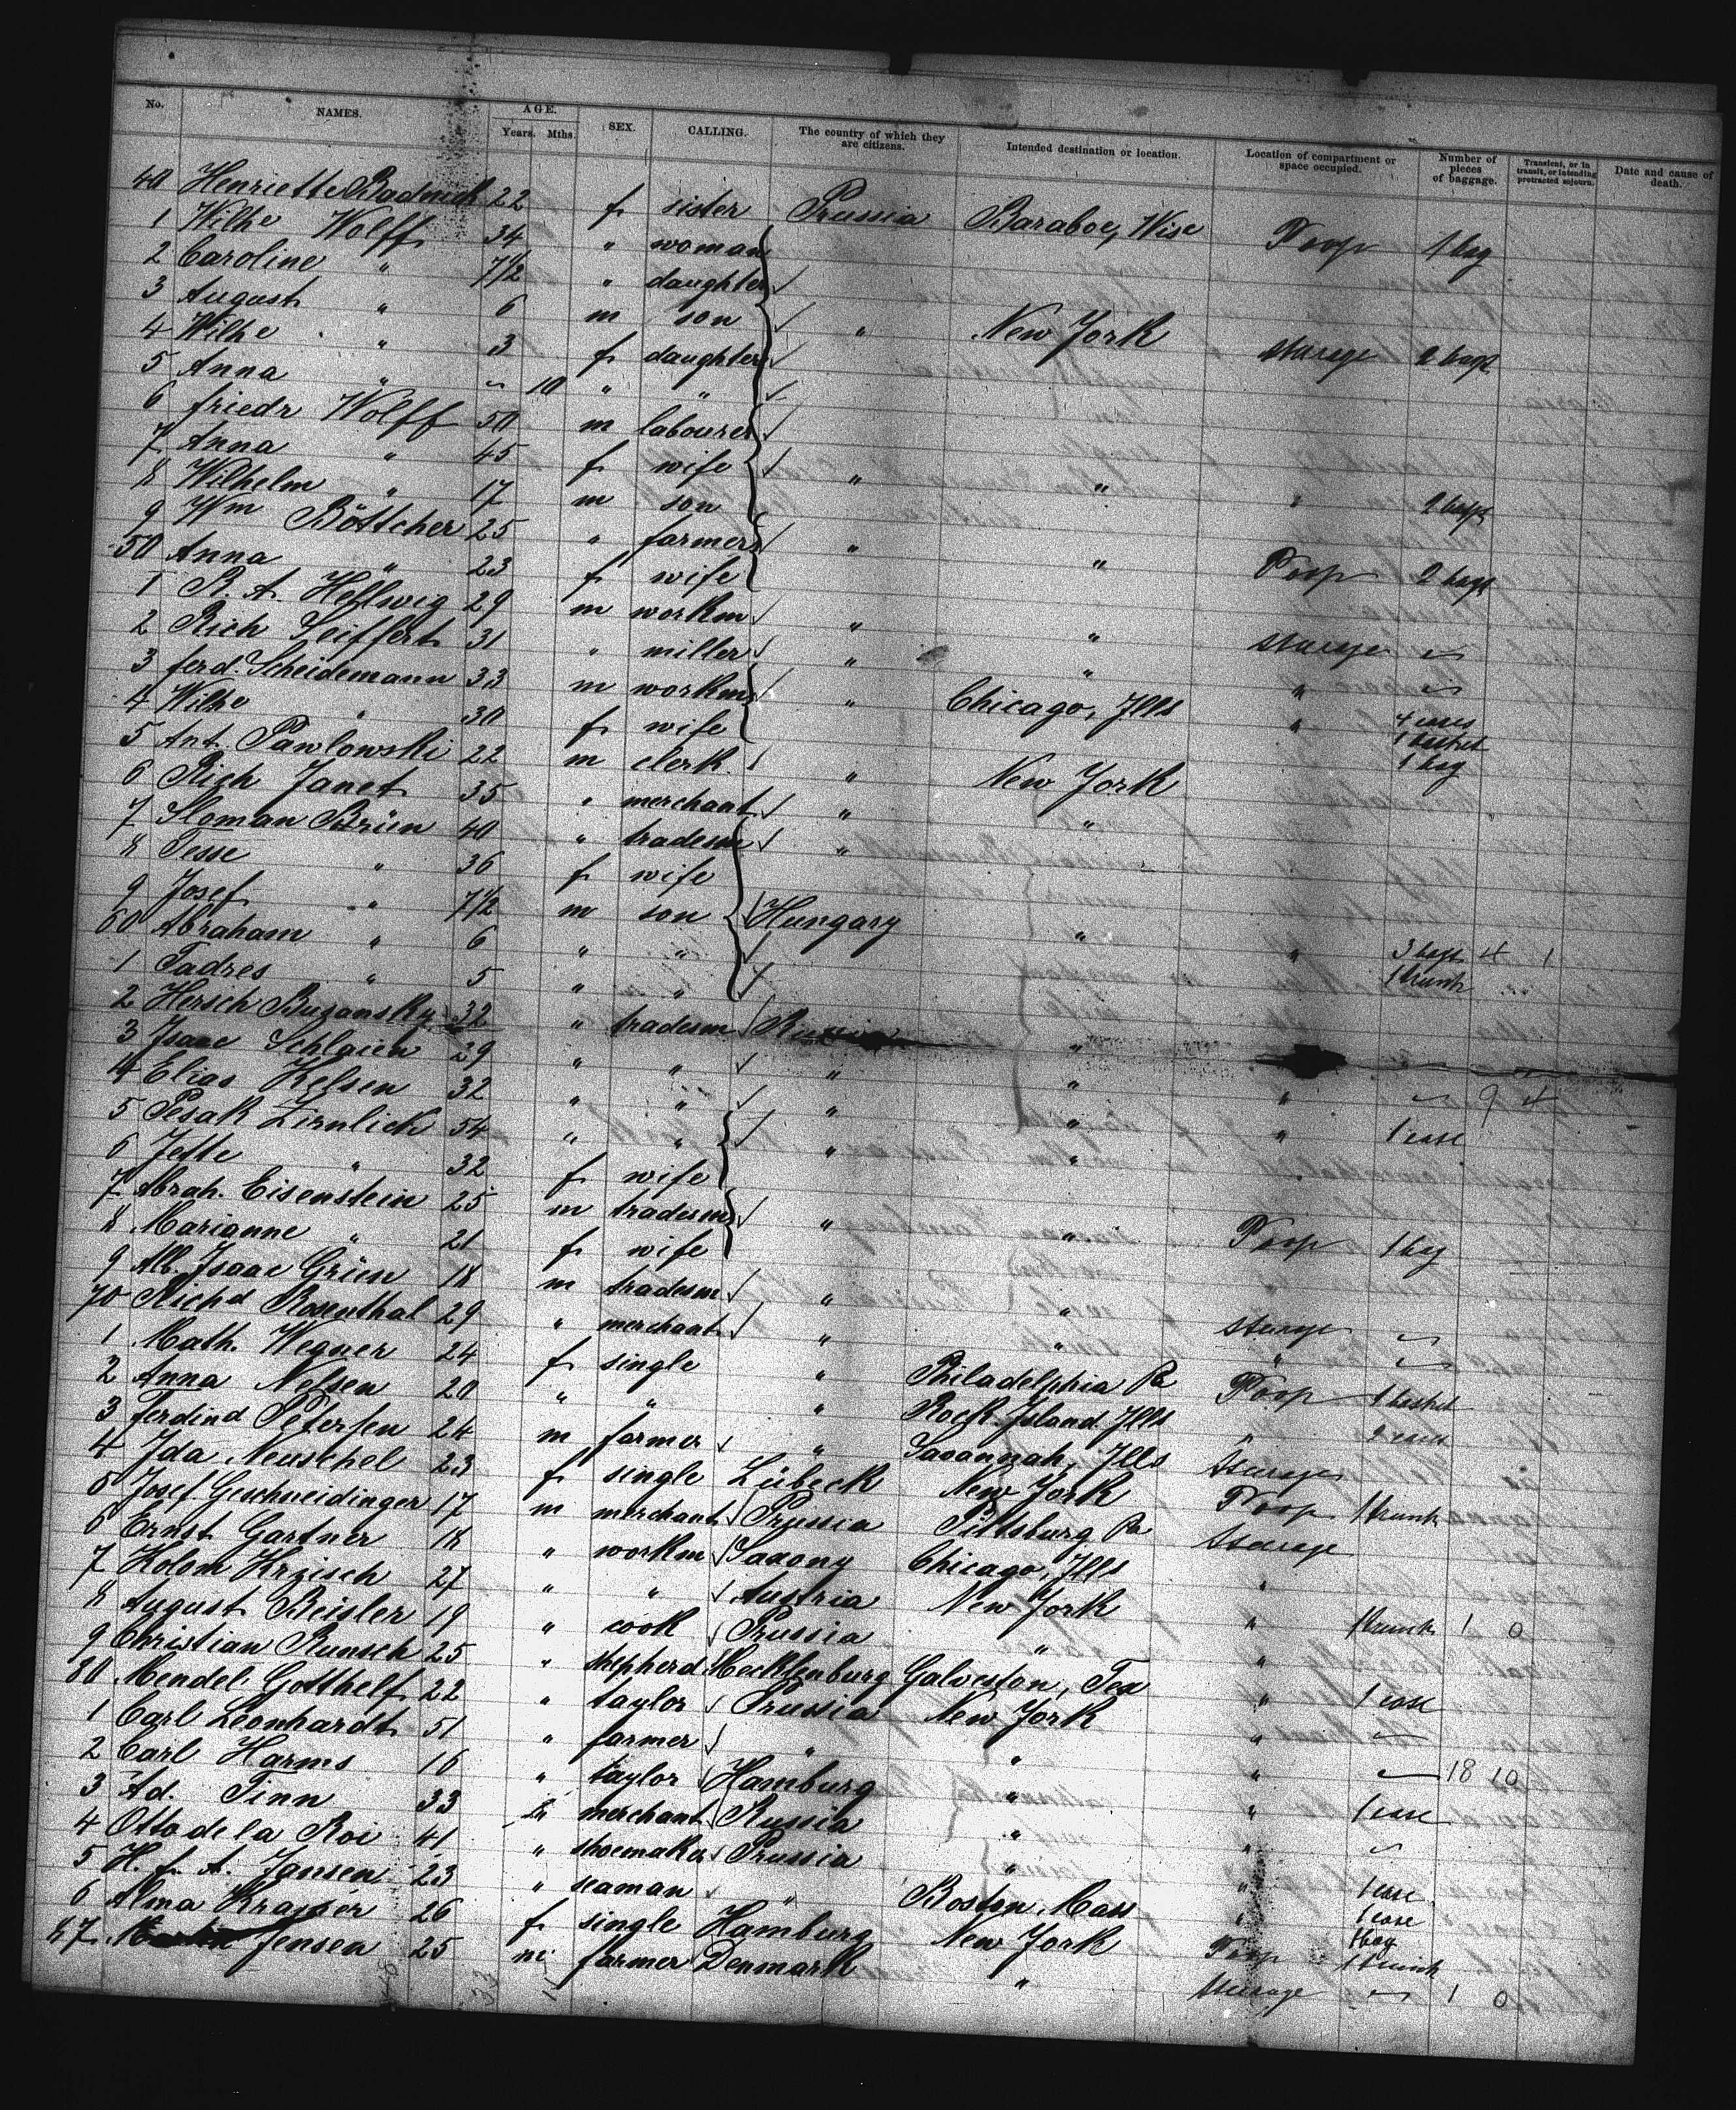 No. NAMES. AGE. Years. Mths. SEX. CALLING. The country of which they are citizens. Intended destination or location. Location of compartment or space occupied. Number of pieces of baggage. Transient, or in transit, or intending protracted sojourn. Date and cause of death.
40 Henriette 22 f sister Prussia Baraboe, Wisc Poop 1 bag
1 Wilhe Wolff 34 " woman
2 Caroline " 7 1/2 " daughter
3 August " 6 m son " New York Steerage 2 bags
4 Wilhe " 3 f daughter
5 Anna " 10 " "
6 friedr Wolff 50 m labourer
7 Anna " 45 f wife " " " 2 bags
8 Wilhelm " 17 m son
9 Wm Böttcher 25 " farmer " " Poop 2 bags
50 Anna " 23 f wife
1 R. A. Hellwig 29 m workm " " Steerage
2 Rich Seiffert 31 " miller " " "
3 ferd. Scheidemann 33 m workm " Chicago, Ills " 4 cases 1 basket 1 bag
4 Wilhe " 30 f wife
5 Ant. Pawlowski 22 m clerk " New York
6 Rich Janet 35 " merchant " "
7 Sloman Brün 40 " tradesm "
8 Tesse " 36 f wife
9 Josef " 7 1/2 m son Hungary " " 3 bags 1 trunk 4 1
60 Abraham " 6 " "
1 Tadres " 5 " "
2 Hersch Buzansky 32 " tradesm Russia "
3 Isaac Schlaien 29 " " " " "
4 Elias Kelsen 32 " " " " " 1 case
5 Pesak Zirnlick 54 " " " "
6 Jette " 32 f wife
7 Abrah. Eisenstein 25 m tradesm " " Poop 1 bag
8 Marianne " 21 f wife
9 Alb. Isaac Grün 18 m tradesm " " Steerage
70 Richd Rosenthal 29 " merchant " " "
1 Math. Wegner 24 f single " Philadelphia Pa Poop 1 basket
2 Anna Nelsen 20 " " " Rock Island Ills " 2 cases
3 Ferdind Petersen 24 m farmer " Savannah, Ills Steerage
4 Ida Neuschel 23 f single Lübeck New York Poop 1 trunk
5 Josef Geschneidinger 17 m merchant Prussia Pittsburg Pa Steerage
6 Ernst Gartner 18 " workm Saxony Chicago, Ills "
7 Kolom Krzisch 27 " " Austria New York " 1 trunk 1 0
8 August Beisler 19 " cook Prussia " "
9 Christian Runsch 25 " shepherd Mecklenburg Galveston, Tex " 1 case
80 Mendel Gotthelf 22 " taylor Prussia New York "
1 Carl Leonhardt 51 " farmer " " " 18 10
2 Carl Harms 16 " taylor Hamburg " " 1 case
3 Ad. Finn 33 m merchant Russia " "
4 Otto de la Roi 41 " shoemaker Prussia " " 1 case
5 H. f. A. Jansen 23 " seaman " Boston Mass " 1 case 1 bag
6 Alma 26 f single Hamburg New York Poop 1 trunk
87 Jensen 25 m farmer Denmark " Steerage 1 0